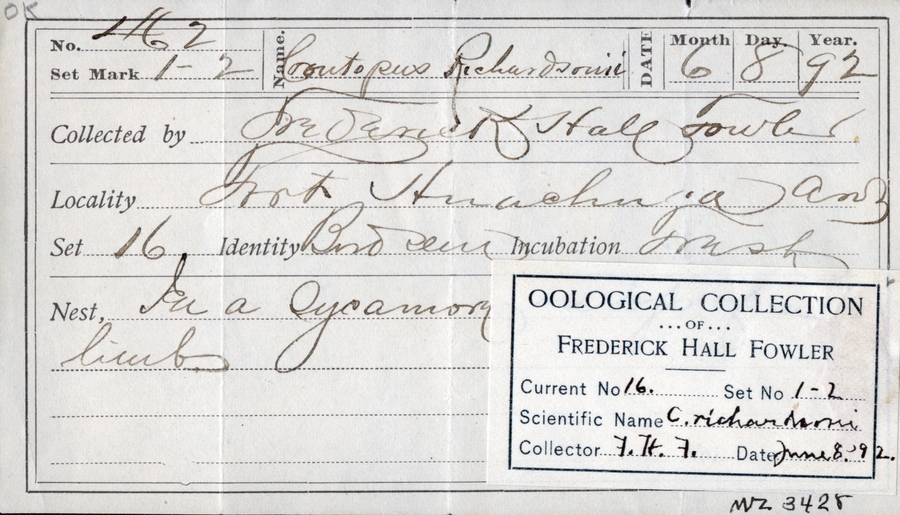 OK
No. 462 Name. Contopus Richardsonii DATE Month Day. Year.
Set Mark 1-2 6 8 92
Collected by Frederick Hall Fowler
Locality Fort Huachuca Ariz
Set 16, Identity Bird seen Incubation Fresh
Nest, In a Sycamore
limb
OOLOGICAL COLLECTION
...OF...
FREDERICK HALL FOWLER
Current No 16. Set No 1-2
Scientific Name C. richardsonii
Collector F. H. F. Date June 8. '92.
3425